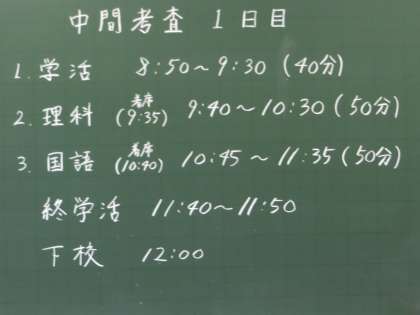 中間考査 1日目
1. 学活 8:50～9:30 (40分)
2. 理科 着席(9:35) 9:40～10:30 (50分)
3. 国語 着席(10:40) 10:45～11:35 (50分)
終学活 11:40～11:50
下校 12:00